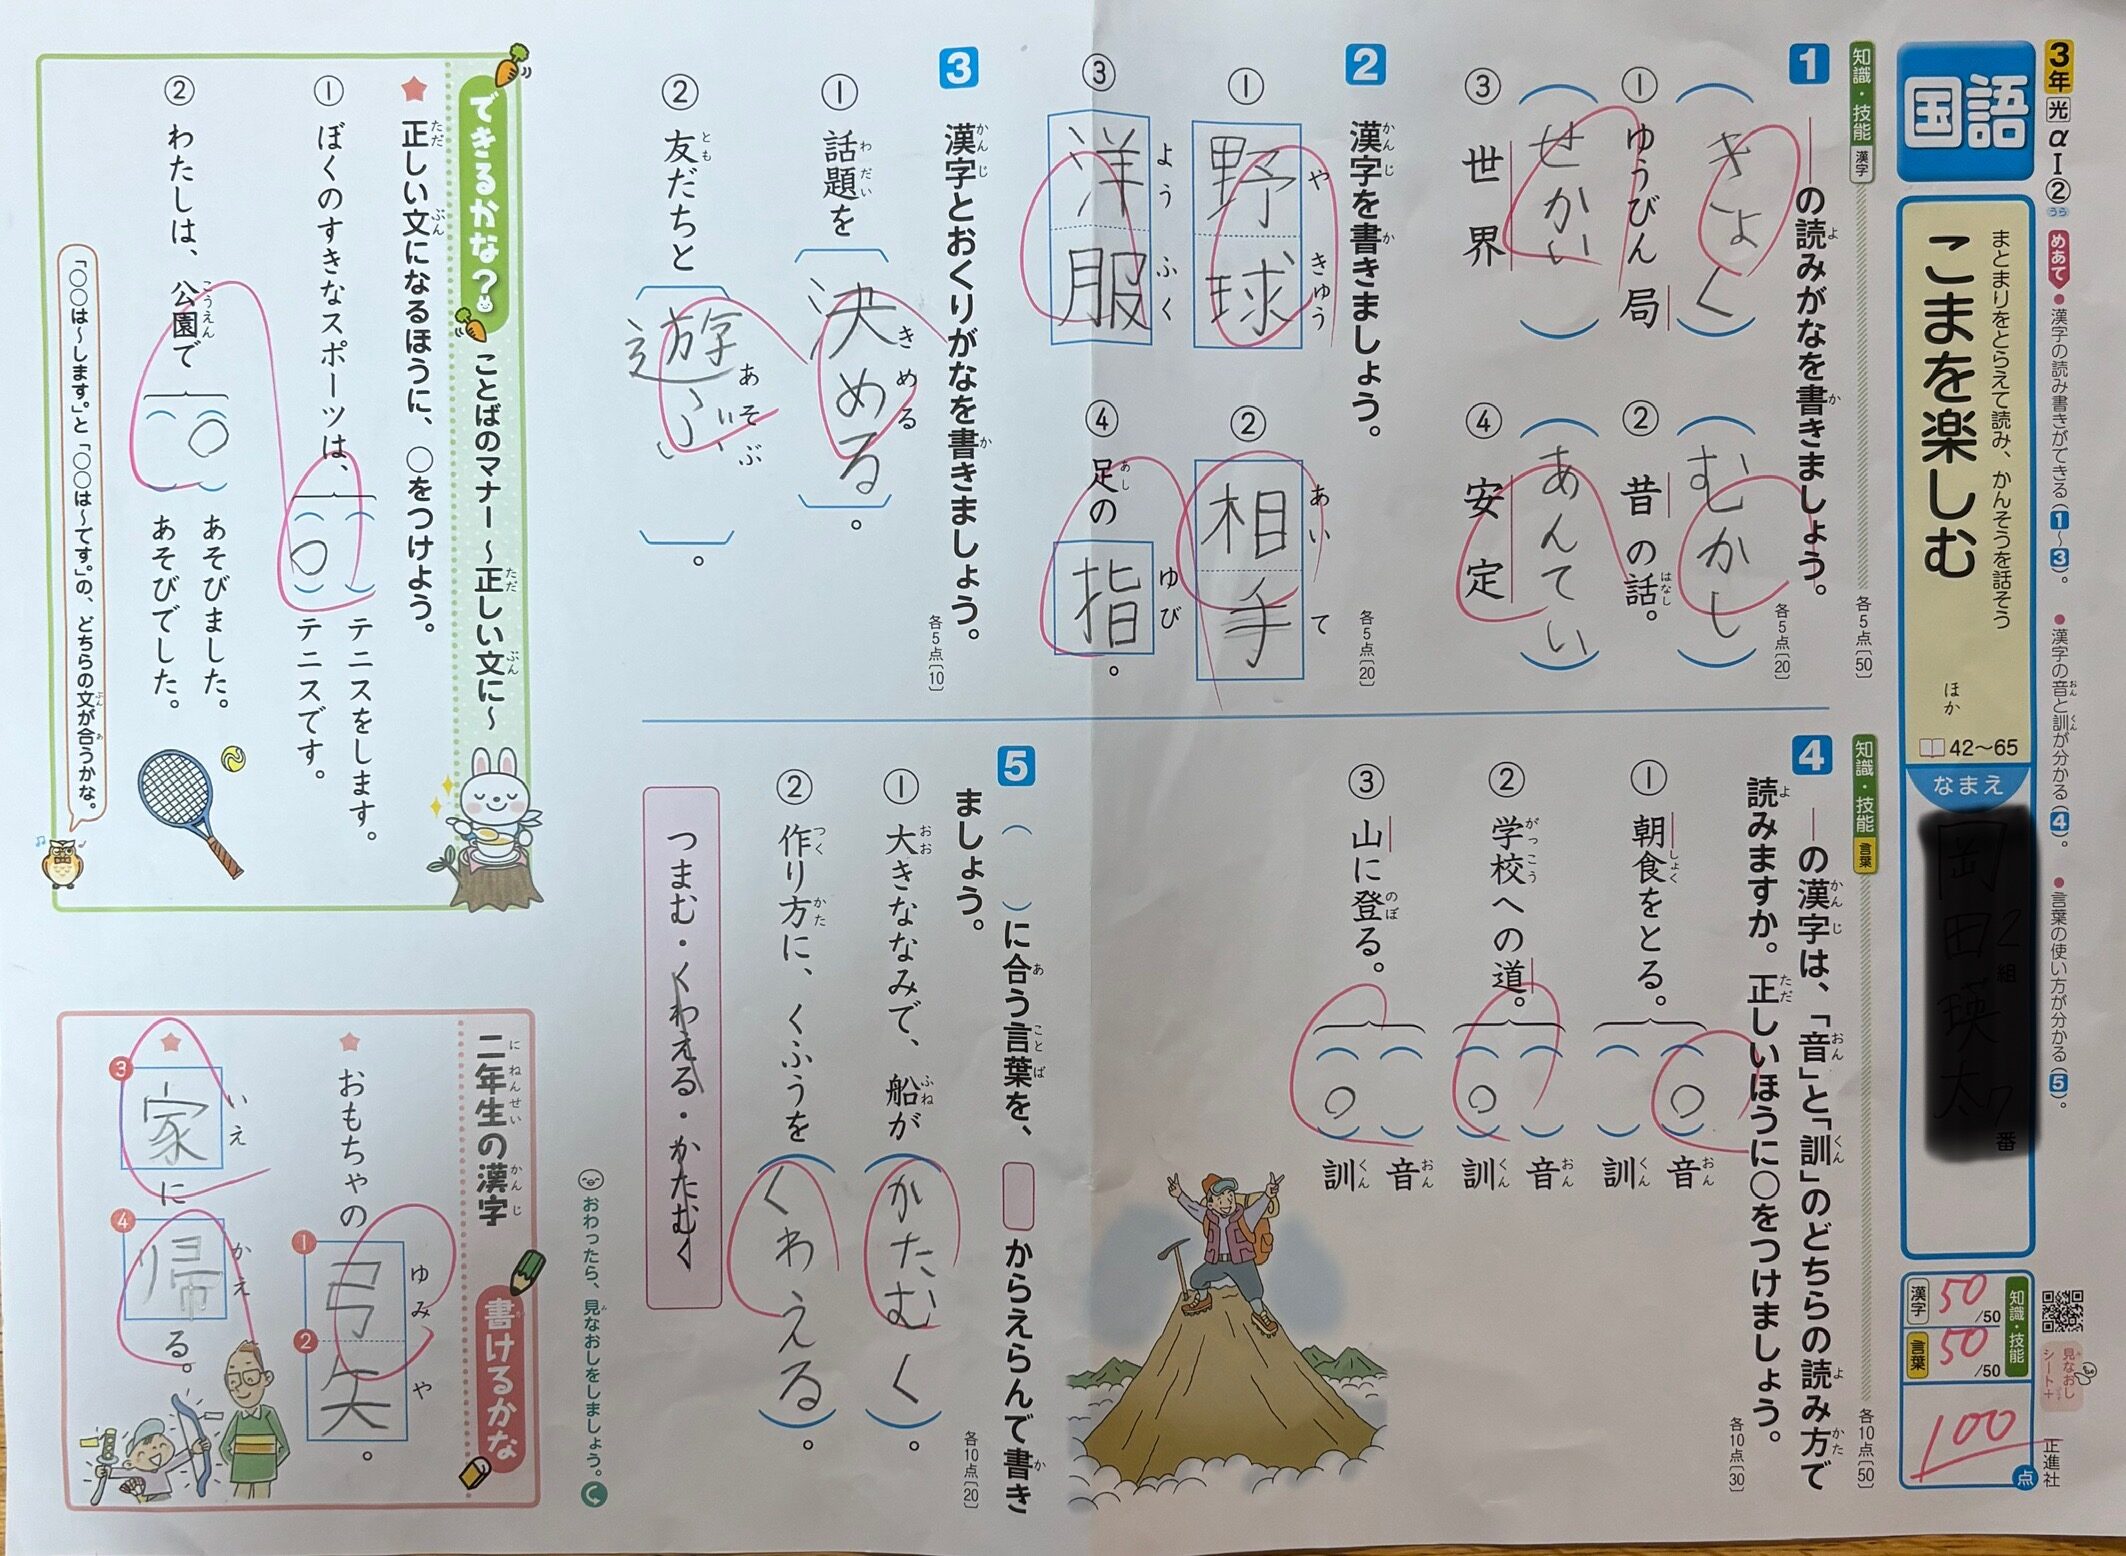 3年 光 αⅠ② うら
めあて ●漢字の読み書きができる(1〜3)。 ●漢字の音と訓が分かる(4)。 ●言葉の使い方が分かる(5)。
国語
まとまりをとらえて読み、かんそうを話そう
こまを楽しむ
ほか
42〜65
なまえ
組
番
知識・技能
漢字 50 /50
言葉 50 /50
100 点
見なおしシート+
正進社
知識・技能 漢字
各5点〔50〕
1 ――の読みがなを書きましょう。
各5点〔20〕
きょく
① ゆうびん局
むかし
② 昔の話。
せかい
③ 世界
あんてい
④ 安定
2 漢字を書きましょう。
各5点〔20〕
① 野球 やきゅう
② 相手 あいて
③ 洋服 ようふく
④ 足の指 ゆび。
3 漢字とおくりがなを書きましょう。
各5点〔10〕
① 話題を決める きめる。
② 友だちと遊ぶ あそぶ。
知識・技能 言葉
各10点〔50〕
4 ――の漢字は、「音」と「訓」のどちらの読み方で
読みますか。正しいほうに○をつけましょう。
各10点〔30〕
① 朝食をとる。 (○)音 ( )訓
② 学校への道。 ( )音 (○)訓
③ 山に登る。 ( )音 (○)訓
5 ( )に合う言葉を、 からえらんで書き
ましょう。
各10点〔20〕
① 大きななみで、船が(かたむく)。
② 作り方に、くふうを(くわえる)。
つまむ・くわえる・かたむく
おわったら、見なおしをしましょう。
できるかな? ことばのマナー 〜正しい文に〜
★ 正しい文になるほうに、○をつけよう。
① ぼくのすきなスポーツは、
( ) テニスをします。
(○) テニスです。
② わたしは、公園で
(○) あそびました。
( ) あそびでした。
「○○は〜します。」と「○○は〜です。」の、どちらの文が合うかな。
二年生の漢字 書けるかな
★ おもちゃの 1 2 弓矢 ゆみや。
★ 3 家 いえ に 4 帰 かえ る。